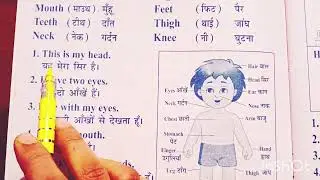 Mouth ( माउथ ) मुँह
Feet ( फिट ) पैर
Teeth ( टीथ ) दाँत
Thigh ( थाई ) जांघ
Neck ( नेक ) गर्दन
Knee ( नी ) घुटना
1. This is my head.
मेरा सिर है।
2. two eyes.
दो आँखें हैं।
3. with my eyes.
आँखों से देखता हूँ।
mouth.
Hair बाल
Head सिर
Eyes आँखें
Ear कान
Neck गर्दन
Nose नाक
Chest छाती
Arm बाजू
Stomach
पेट
Finger
उंगलियाँ
Hand
हाथ
Thigh
जांघ
Leg टाँग